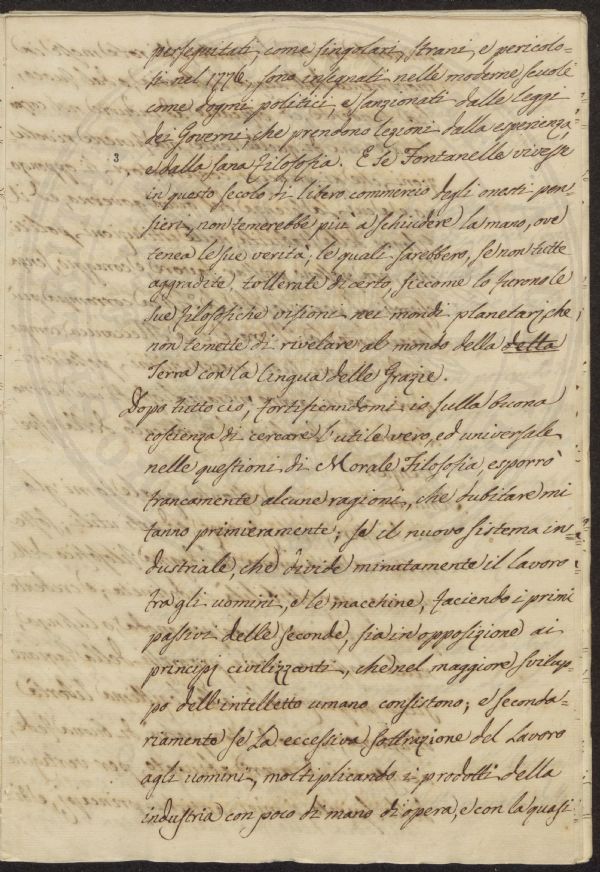 perseguitati, come singolari, strani, e pericolo-
si nel 1776, sono insegnati nelle moderne scuole
come dogmi politici, e sanzionati dalle leggi
dei Governi, che prendono lezioni dalla esperienza,
e dalla sana filosofia. E se Fontanelle vivesse
3
in questo secolo di libero commercio degli onesti pen-
sieri, non temerebbe più a schiudere la mano, ove
tenea le sue verità, le quali sarebbero, se non tutte
aggradite, tollerate di certo, siccome lo furono le
sue filosofiche visioni nei mondi planetarj, che
non temette di rivelare al mondo della della
Terra con la lingua delle Grazie.
Dopo tutto ciò, fortificandomi io sulla buona
coscienza di cercare l'utile vero, ed universale
nelle questioni di Morale Filosofia, esporrò
francamente alcune ragioni, che dubitare mi
fanno primieramente, se il nuovo sistema in-
dustriale, che divide minutamente il lavoro
tra gli uomini, e le macchine, facendo i primi
passivi delle seconde, sia in opposizione ai
principj civilizzanti, che nel maggiore svilup-
po dell'intelletto umano consistono; e seconda-
riamente se la eccessiva sottrazione del Lavoro
agli uomini, moltiplicando i prodotti della
industria con poco di mano di opera, e con la quasi